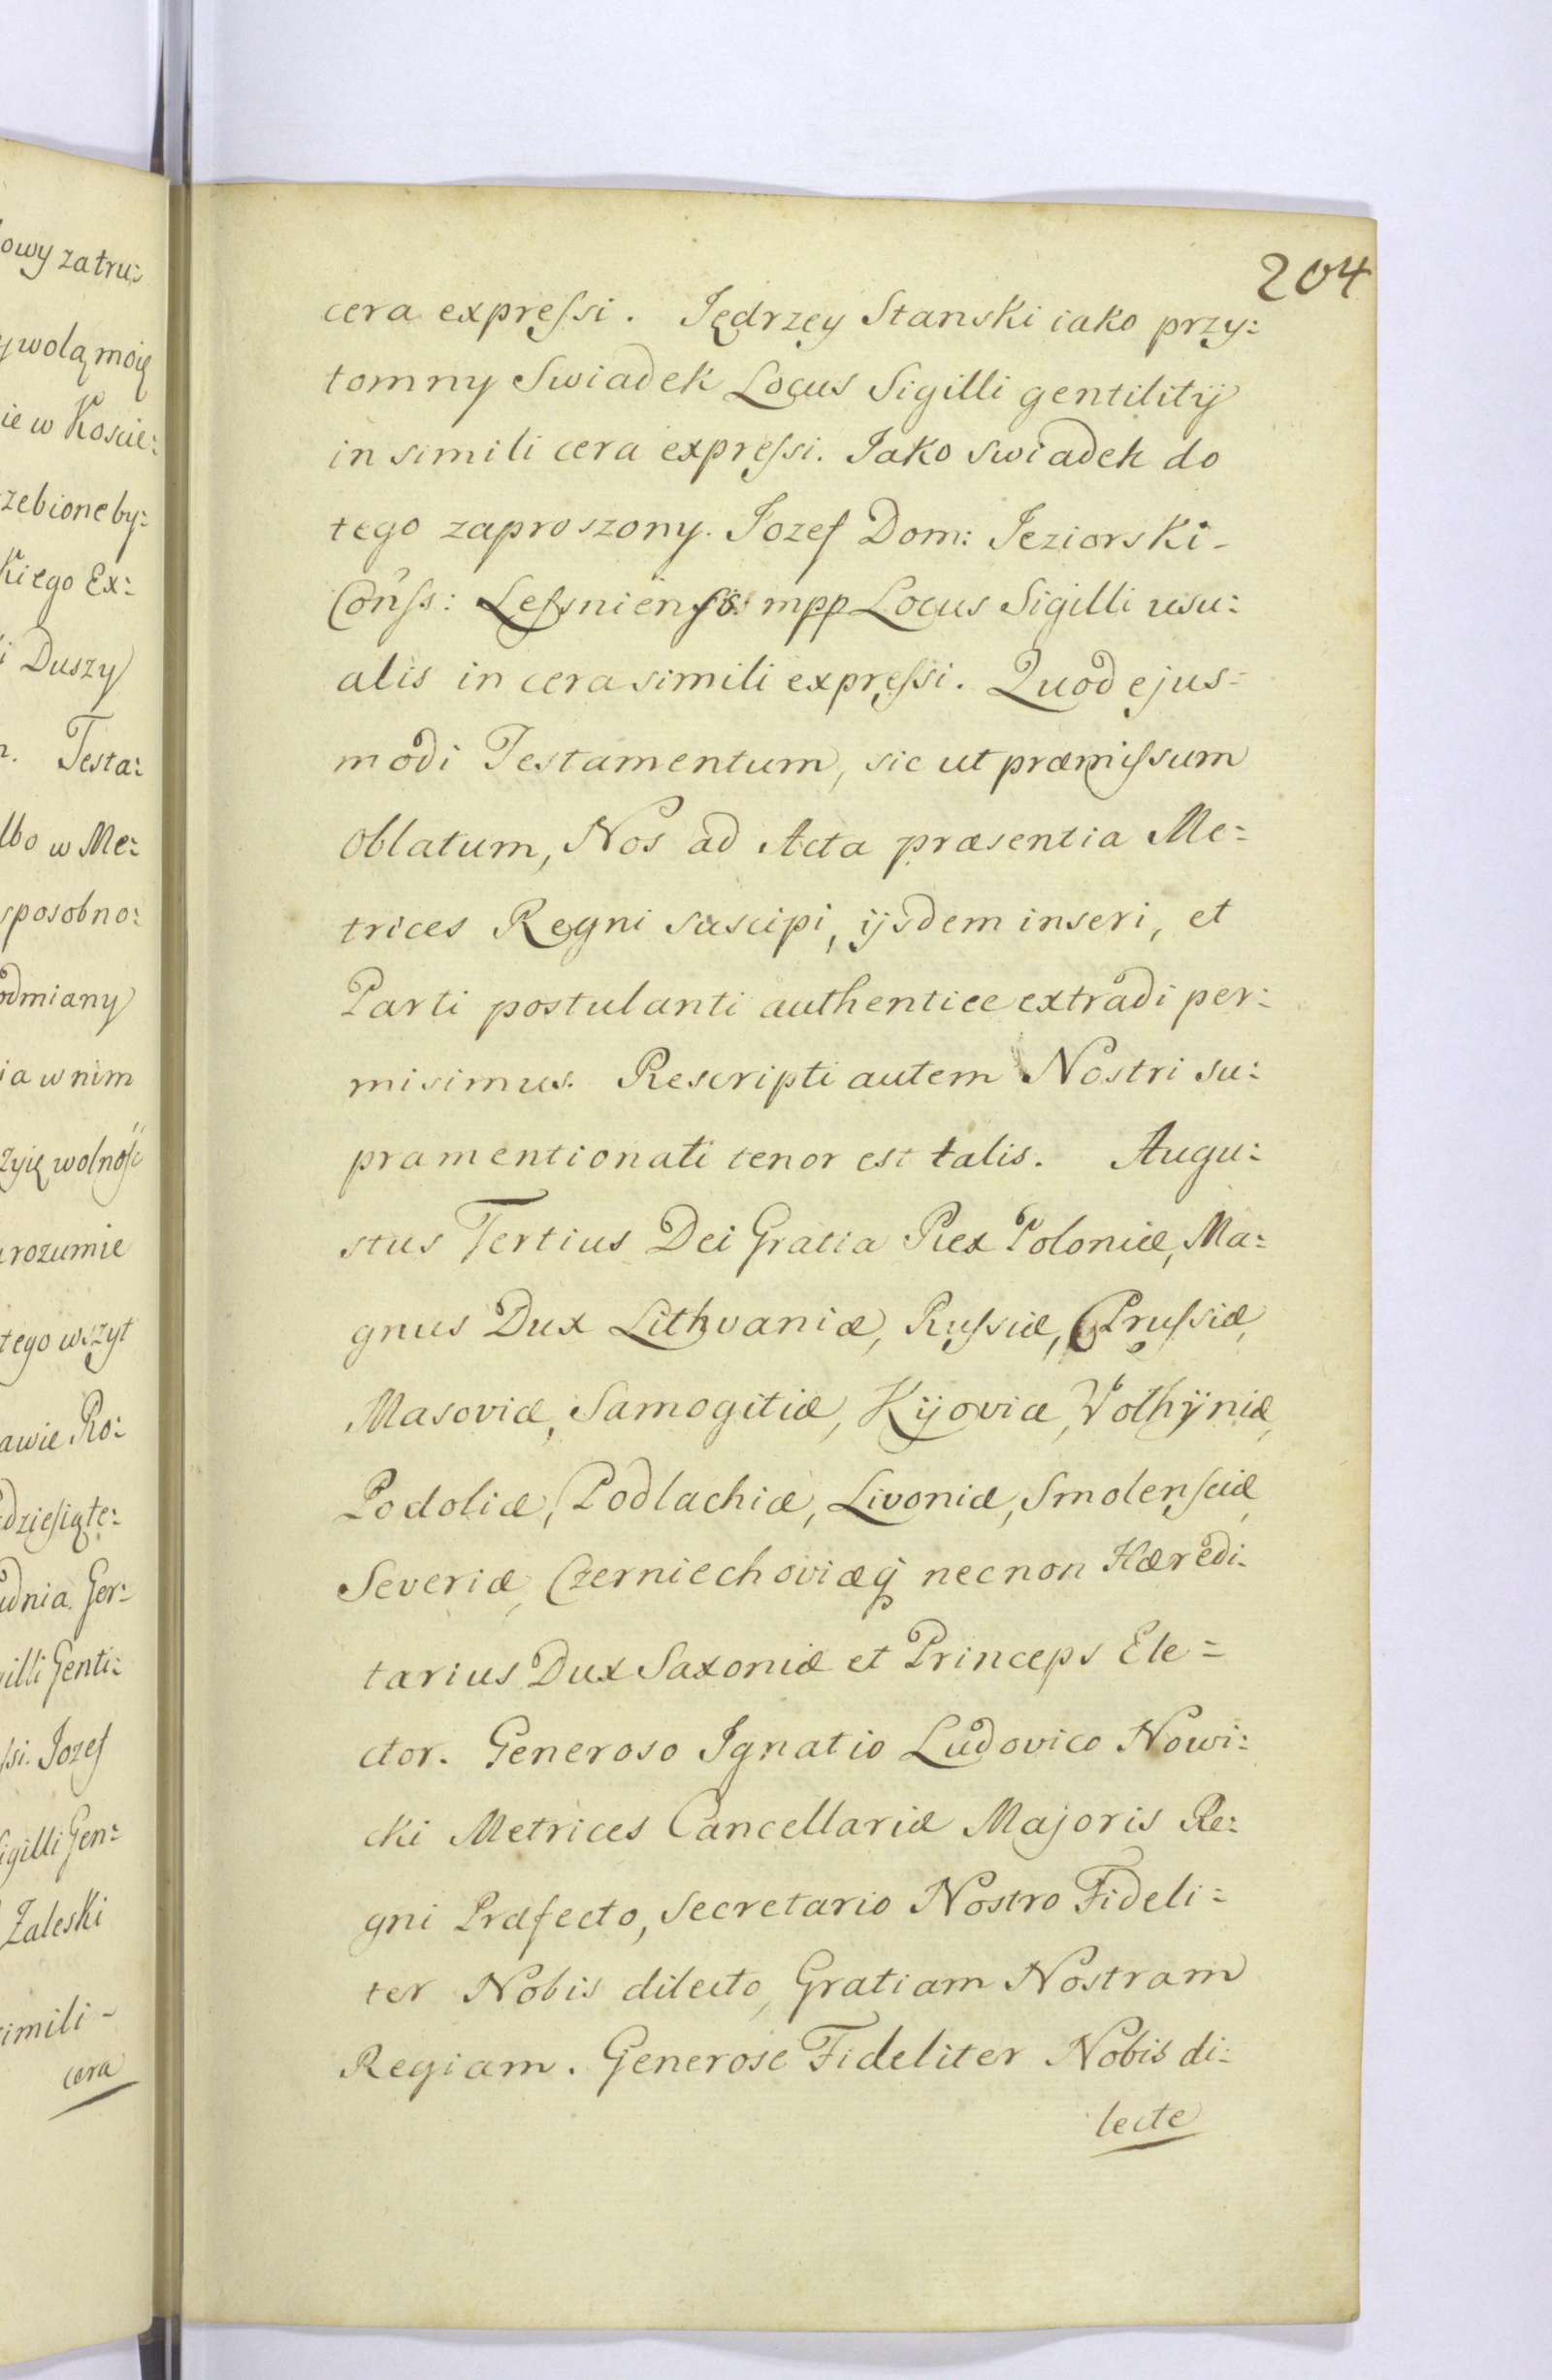 owy zatru:
wolą moię
ie w Koście:
zebione by:
kiego Ex:
i Duszy
Testa:
lbo w Me:
sposobno:
odmiany
ia w nim
żyię wolność
rozumie
tego wszyt
awie Ro:
dziesiąte:
udnia. Ger:
gilli Genti:
ſsi. Jozef
Sigilli Gen:
Zaleski
simili -
cera
204
cera expreſsi. Jędrzey Stanski iako przy:
tomny Swiadek Locus Sigilli gentilitij
in simili cera expreſsi. Jako swiadek do
tego zaproszony. Jozef Dom: Jeziorski -
Conſs: Leſsniensis mpp Locus Sigilli usu:
alis in cera simili expreſsi. Quod ejus=
modi Testamentum, sic ut præmiſsum
oblatum, Nos ad Acta præsentia Me=
trices Regni suscipi, ijsdem inseri, et
Parti postulanti authentice extradi per:
misimus. Rescripti autem Nostri su:
pramentionati tenor est talis. Augu:
stus Tertius Dei Gratia Rex Poloniæ, Ma:
gnus Dux Lithvaniæ, Ruſsiæ, Pruſsiæ,
Masoviæ, Samogitiæ, Kijoviæ, Volhÿniæ,
Podoliæ, Podlachiæ, Livoniæ, Smolenſciæ,
Severiæ, Czerniechoviæq; necnon Hæredi-
tarius Dux Saxoniæ et Princeps Ele=
ctor. Generoso Ignatio Ludovico Nowi:
cki Metrices Cancellariæ Majoris Re:
gni Præfecto, Secretario Nostro Fideli=
ter Nobis dilecto, Gratiam Nostram
Regiam. Generose Fideliter Nobis di:
lecte